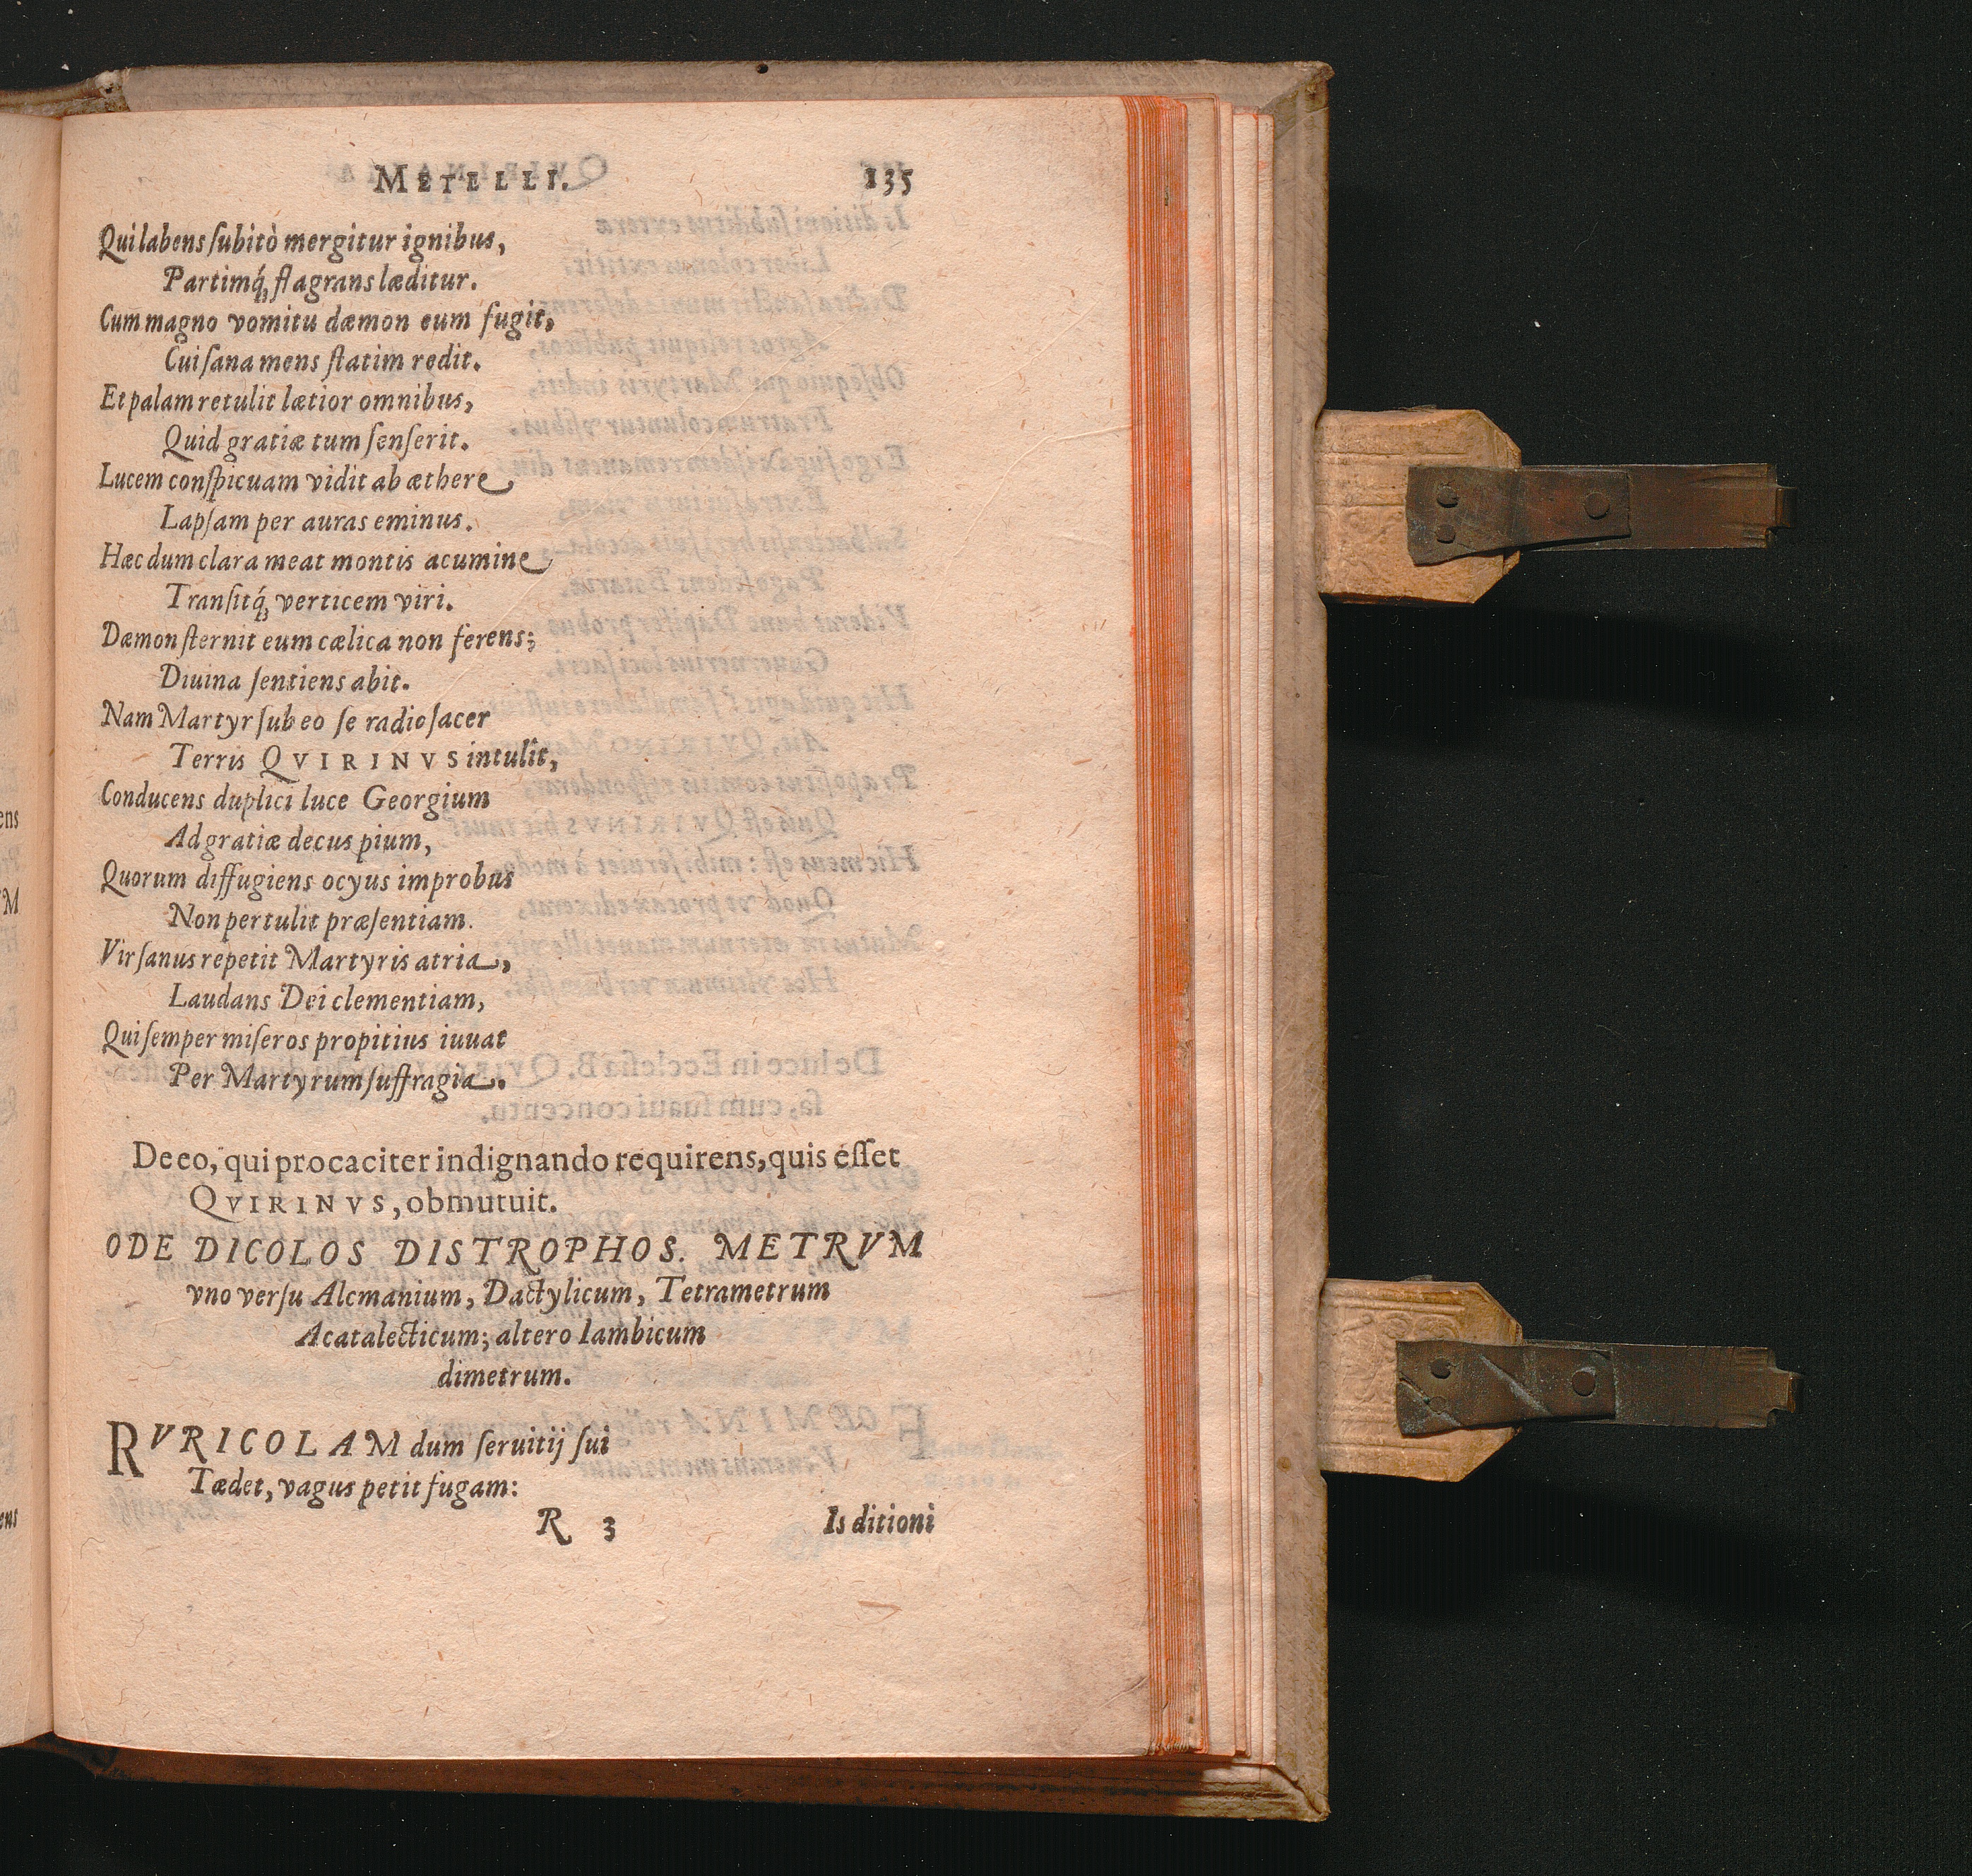 METELLI. 135
Qui labens ſubitò mergitur ignibus,
Partimq́; flagrans læditur.
Cum magno vomitu dæmon eum fugit,
Cui ſana mens ſtatim redit.
Et palam retulit lætior omnibus,
Quid gratiæ tum ſenſerit.
Lucem conſpicuam vidit ab æthere
Lapſam per auras eminus.
Hæc dum clara meat montis acumine
Tranſitq́; verticem viri.
Dæmon ſternit eum cælica non ferens;
Diuina ſentiens abit.
Nam Martyr ſub eo ſe radio ſacer
Terris QVIRINVS intulit,
Conducens duplici luce Georgium
Ad gratiæ decus pium,
Quorum diffugiens ocyus improbus
Non pertulit præſentiam.
Vir ſanus repetit Martyris atria,
Laudans Dei clementiam,
Qui ſemper miſeros propitius iuuat
Per Martyrum ſuffragia.
De eo, qui procaciter indignando requirens, quis eſſet
QVIRINVS, obmutuit.
ODE DICOLOS DISTROPHOS. METRVM
vno verſu Alcmanium, Dactylicum, Tetrametrum
Acatalecticum; altero Iambicum
dimetrum.
RVRICOLAM dum ſeruitij ſui
Tædet, vagus petit fugam:
R 3 Is ditioni